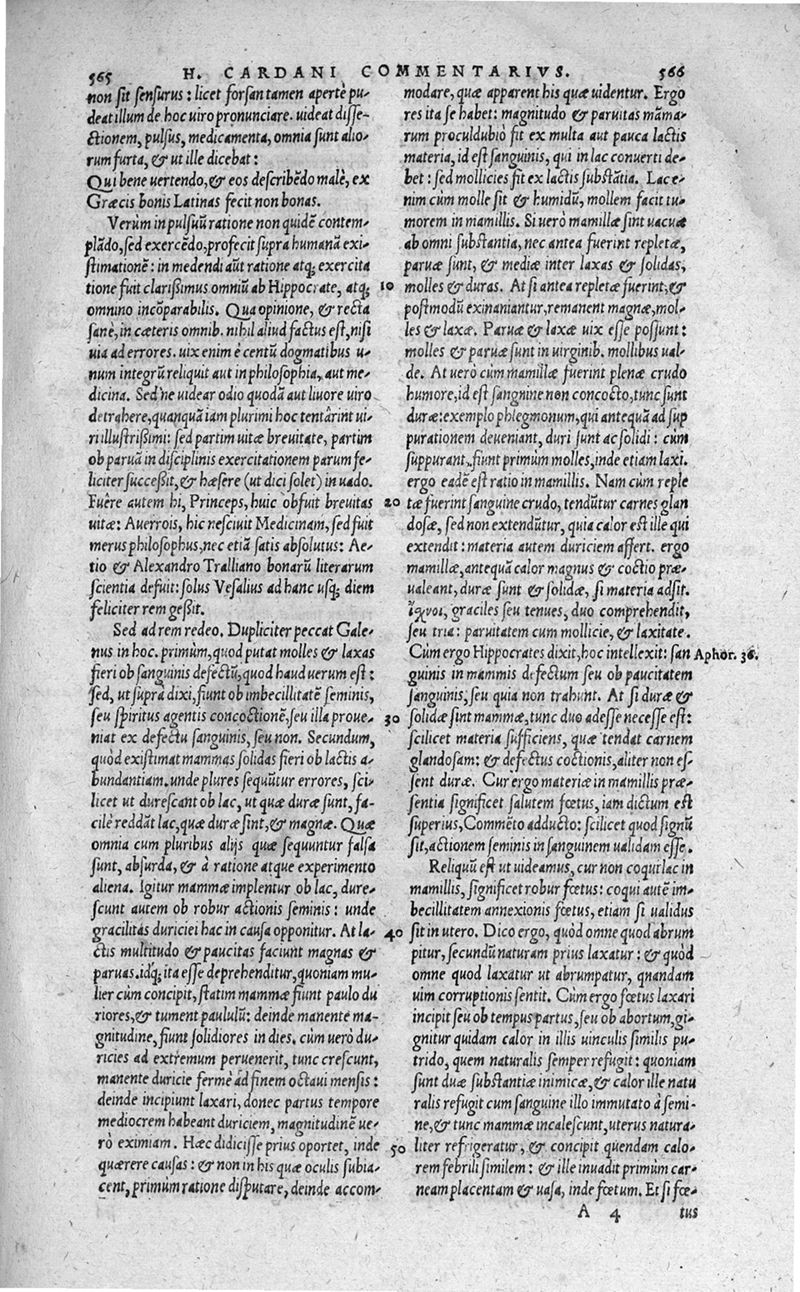 565 H. CARDANI COMMENTARIVS. 566
non sit sensurus : licet forsan tamen apertè pu-
deat illum de hoc uiro pronunciare. uideat disse-
ctionem, pulsus, medicamenta, omnia sunt alio-
rum furta, & ut ille dicebat :
Qui bene uertendo, & eos describēdo malè, ex
Græcis bonis Latinas fecit non bonas.
Verùm in pulsuū ratione non quidē contem-
plādo, sed exercēdo, profecit supra humanā exi-
stimationē : in medendi aūt ratione atq; exercita
tione fuit clarißimus omniū ab Hippocrate, atq;
omnino incōparabilis. Qua opinione, & recta
sanè, in cæteris omnib. nihil aliud factus est, nisi
uia ad errores. uix enim è centū dogmatibus u-
num integrū reliquit aut in philosophia, aut me-
dicina. Sed ne uidear odio quodā aut liuore uiro
detrahere, quanquā iam plurimi hoc tentârint ui-
ri illustrißimi : sed partim uitæ breuitate, partim
ob paruā in disciplinis exercitationem parum fe-
liciter succeßit, & hæsere (ut dici solet) in uado.
Fuêre autem hi, Princeps, huic obfuit breuitas
uitæ : Auerrois, hic nesciuit Medicinam, sed fuit
merus philosophus, nec etiā satis absolutus : Ae-
tio & Alexandro Tralliano bonarū literarum
scientia defuit : solus Vesalius ad hanc usq; diem
feliciter rem geßit.
Sed ad rem redeo. Dupliciter peccat Gale-
nus in hoc. primùm, quod putat molles & laxas
fieri ob sanguinis defectū, quod haud uerum est :
sed, ut suprà dixi, fiunt ob imbecillitatē seminis,
seu spiritus agentis concoctionē, seu illa proue-
niat ex defectu sanguinis, seu non. Secundum,
quòd existimat mammas solidas fieri ob lactis a-
bundantiam. unde plures sequūtur errores, sci-
licet ut durescant ob lac, ut quæ duræ sunt, fa-
cilè reddāt lac, quæ duræ sint, & magnæ. Quæ
omnia cum pluribus alijs quæ sequuntur falsa
sunt, absurda, & à ratione atque experimento
aliena. Igitur mammæ implentur ob lac, dure-
scunt autem ob robur actionis seminis : unde
gracilitas duriciei hac in causa opponitur. At la-
ctis multitudo & paucitas faciunt magnas &
paruas. idq; ita esse deprehenditur, quoniam mu-
lier cùm concipit, statim mammæ fiunt paulo du
riores, & tument paululū : deinde manente ma-
gnitudine, fiunt solidiores in dies, cùm uerò du-
ricies ad extremum peruenerit, tunc crescunt,
manente duricie fermè ad finem octaui mensis :
deinde incipiunt laxari, donec partus tempore
mediocrem habeant duriciem, magnitudinē ue-
rò eximiam. Hæc didicisse prius oportet, inde
quærere causas : & non in his quæ oculis subia-
cent, primùm ratione disputare, deinde accom-
modare, quæ apparent his quæ uidentur. Ergo
res ita se habet : magnitudo & paruitas māma-
rum proculdubiò fit ex multa aut pauca lactis
materia, id est sanguinis, qui in lac conuerti de-
bet : sed mollicies fit ex lactis substātia. Lac e-
nim cùm molle sit & humidū, mollem facit tu-
morem in mamillis. Si uerò mamillæ sint uacuæ
ab omni substantia, nec antea fuerint repletæ,
paruæ sunt, & mediæ inter laxas & solidas,
10 molles & duras. At si antea repletæ fuerint, &
postmodū exinaniantur, remanent magnæ, mol-
les & laxæ. Paruæ & laxæ uix esse possunt :
molles & paruæ sunt in uirginib. mollibus ual-
de. At uerò cùm mamillæ fuerint plenæ crudo
humore, id est sanguine non concocto, tunc sunt
duræ : exemplo phlegmonum, qui antequā ad sup
purationem deueniant, duri sunt ac solidi : cùm
suppurant, fiunt primùm molles, inde etiam laxi.
ergo eadē est ratio in mamillis. Nam cùm reple
20 tæ fuerint sanguine crudo, tendūtur carnes glan
dosæ, sed non extendūtur, quia calor est ille qui
extendit : materia autem duriciem affert. ergo
mamillæ, antequā calor magnus & coctio præ-
ualeant, duræ sunt & solidæ, si materia adsit.
ἰχνοι, graciles seu tenues, duo comprehendit,
seu tria : paruitatem cum mollicie, & laxitate.
Cùm ergo Hippocrates dixit, hoc intellexit : san Aphor. 36.
guinis in mammis defectum seu ob paucitatem
sanguinis, seu quia non trahunt. At si duræ &
30 solidæ sint mammæ, tunc duo adesse necesse est :
scilicet materia sufficiens, quæ tendat carnem
glandosam : & defectus coctionis, aliter non es-
sent duræ. Cur ergo materiæ in mamillis præ-
sentia significet salutem fœtus, iam dictum est
superius, Commēto adducto : scilicet quod signū
sit, actionem seminis in sanguinem ualidam esse.
Reliquū est ut uideamus, cur non coqui lac in
mamillis, significet robur fœtus : coqui autē im-
becillitatem annexionis fœtus, etiam si ualidus
40 sit in utero. Dico ergo, quòd omne quod abrum
pitur, secundū naturam prius laxatur : & quòd
omne quod laxatur ut abrumpatur, quandam
uim corruptionis sentit. Cùm ergo fœtus laxari
incipit seu ob tempus partus, seu ob abortum, gi-
gnitur quidam calor in illis uinculis similis pu-
trido, quem naturalis semper refugit : quoniam
sunt duæ substantiæ inimicæ, & calor ille natu
ralis refugit cum sanguine illo immutato à semi-
ne, & tunc mammæ incalescunt, uterus natura-
50 liter refrigeratur, & concipit quendam calo-
rem febrili similem : & ille inuadit primùm car-
neam placentam & uasa, inde fœtum. Et si fœ-
A 4 tus